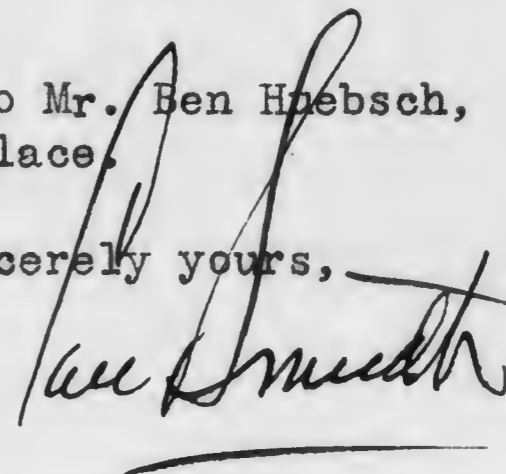 o Mr. Ben Huebsch,
lace.
cerely yours,